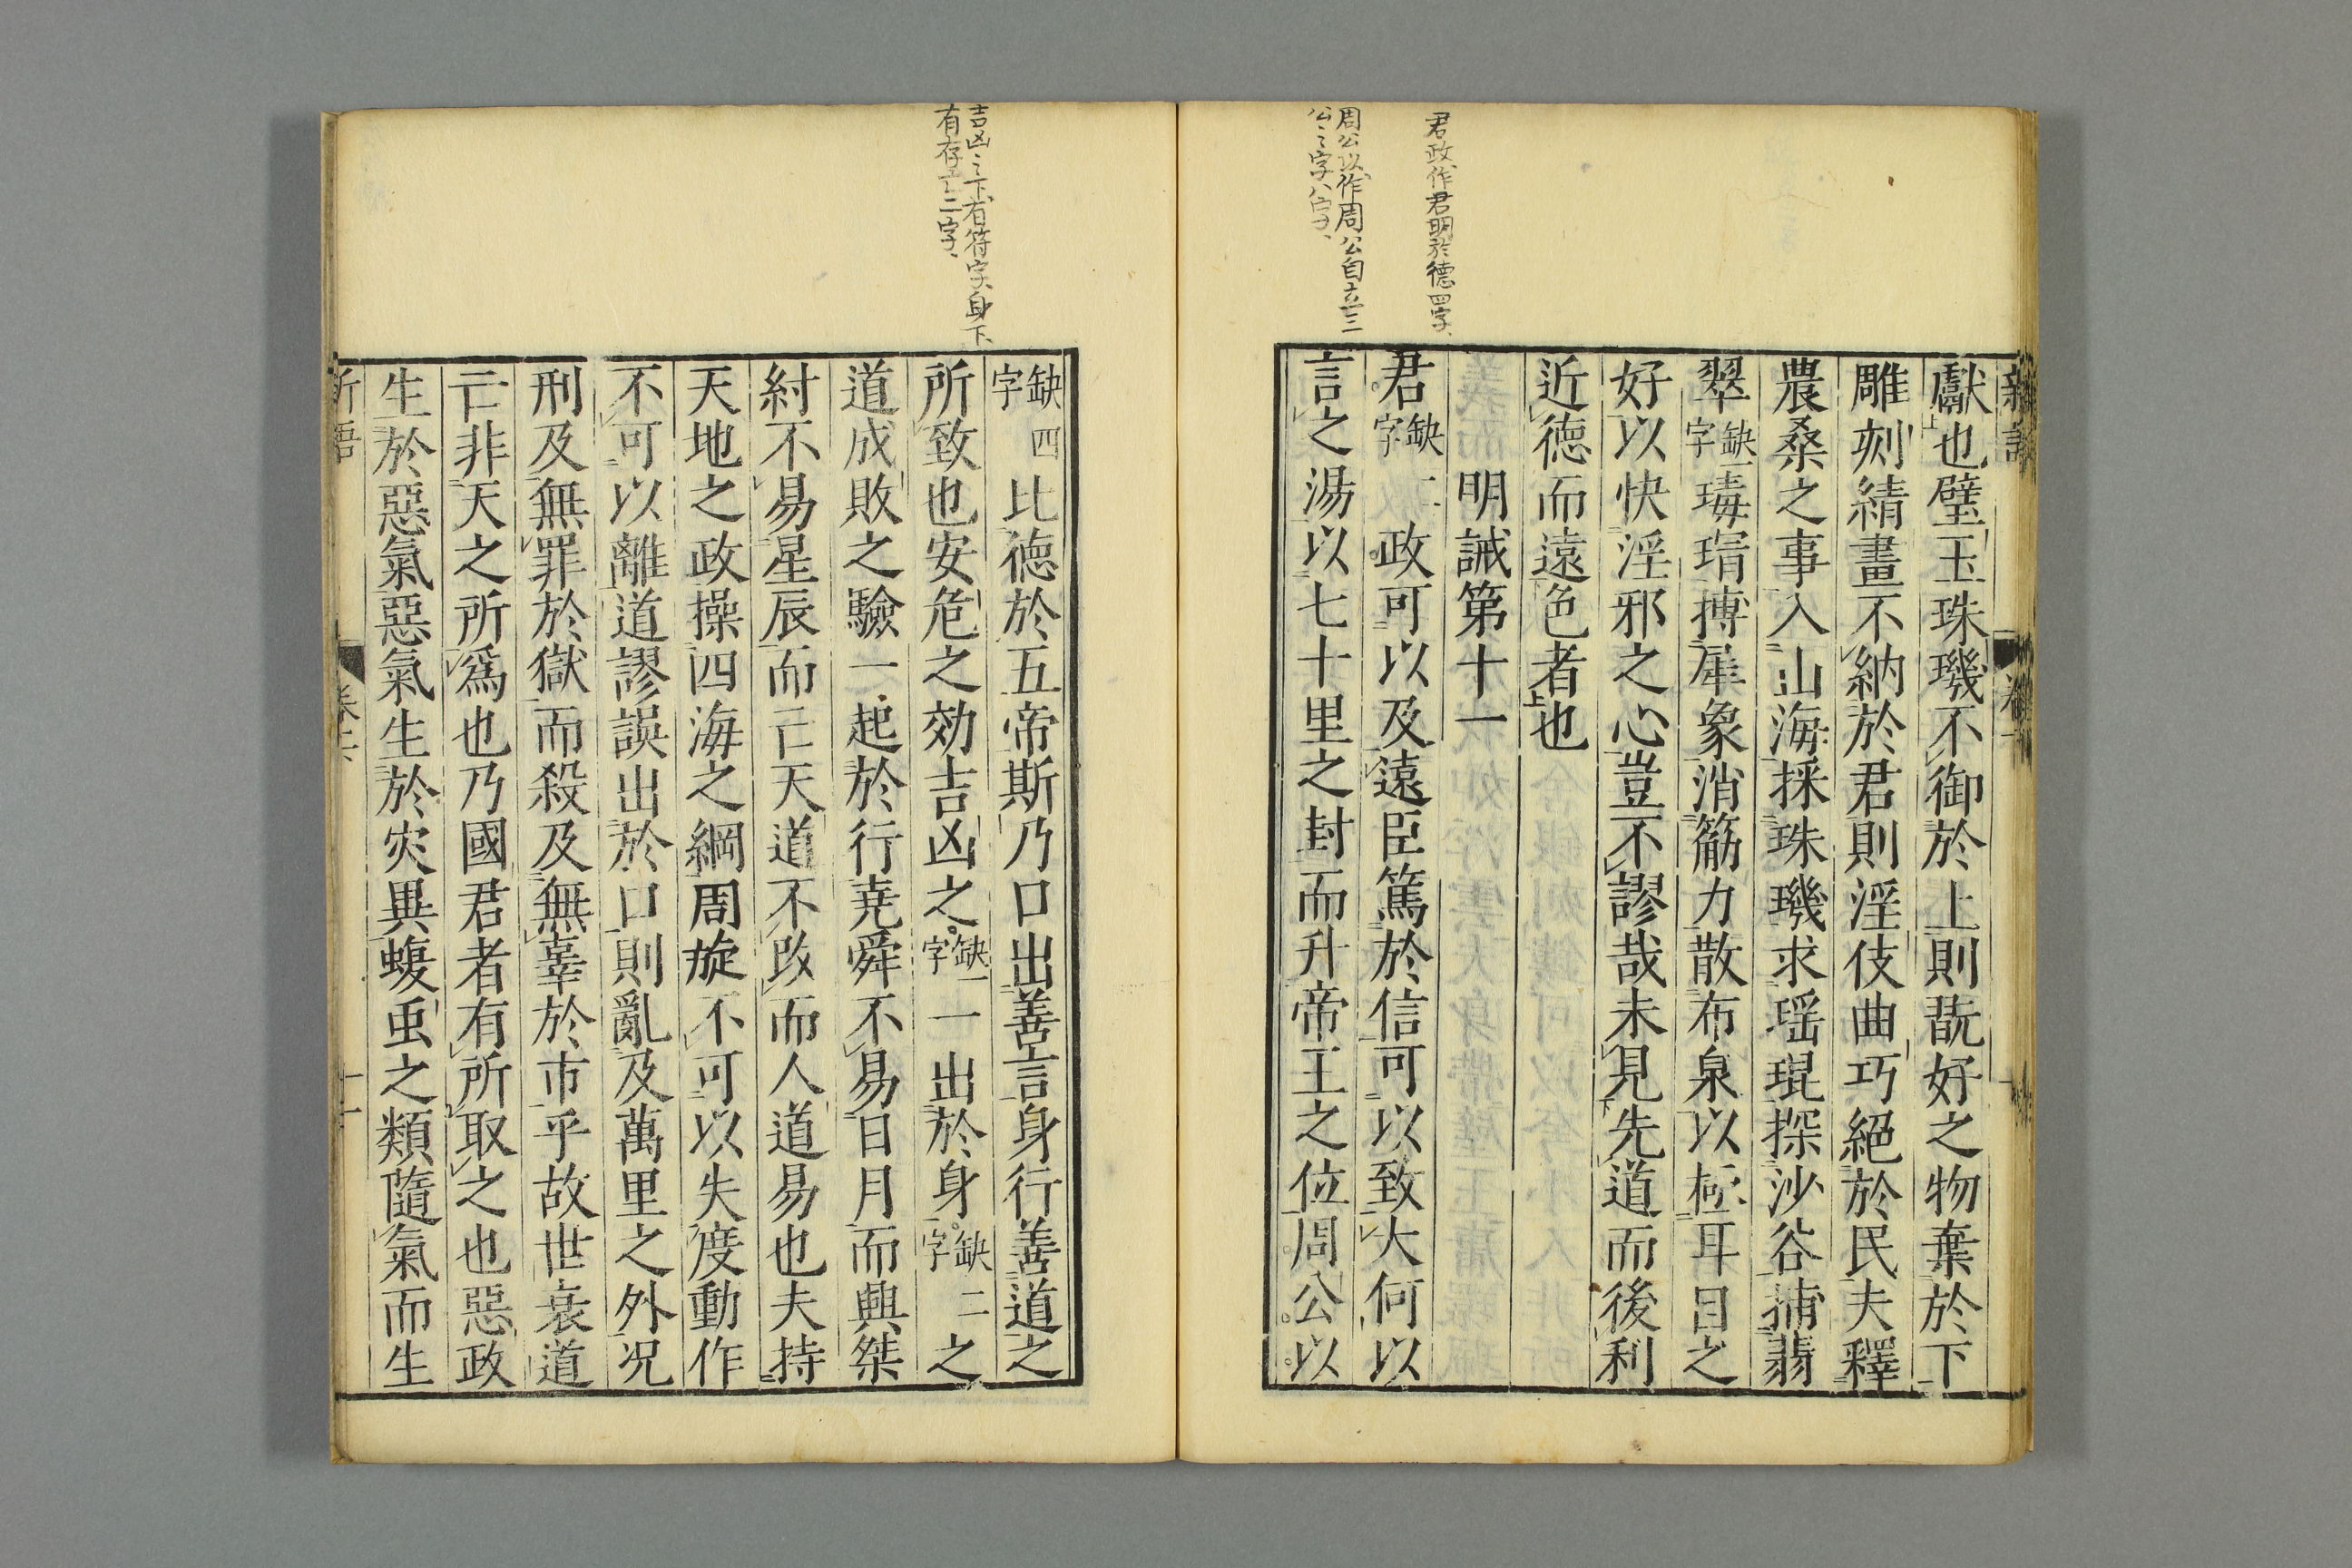 君政、作君明於德四字、
周公以、作周公自立三
公ミ字八字、
獻也璧玉珠璣不御於上則翫好之物棄於下
雕刻綪畫不納於君則淫伎曲巧絕於民夫釋
農桑之事入山海採珠璣求瑶琨探沙谷捕翡
翠缺一字瑇瑁搏犀象消筋力散布泉以極耳目之
好以快淫邪之心豈不謬哉未見先道而後利
近德而遠色者也
明誡第十一
君缺二字政可以及遠臣篤於信可以致大何以
言之湯以七十里之封而升帝王之位周公以
吉凶之下、有符字、身下、
有存亡二字、
缺四字比德於五帝斯乃口出善言身行善道之
所致也安危之効吉凶之缺一字一出於身缺二字之
道成敗之驗一起於行堯舜不易日月而興桀
紂不易星辰而亡天道不改而人道易也夫持
天地之政操四海之綱周旋不可以失度動作
不可以離道謬誤出於口則亂及萬里之外况
刑及無罪於獄而殺及無辜於市乎故世衰道
亡非天之所爲也乃國君者有所取之也惡政
生於惡氣惡氣生於灾異蝮虫之類隨氣而生
新語
卷下
十一